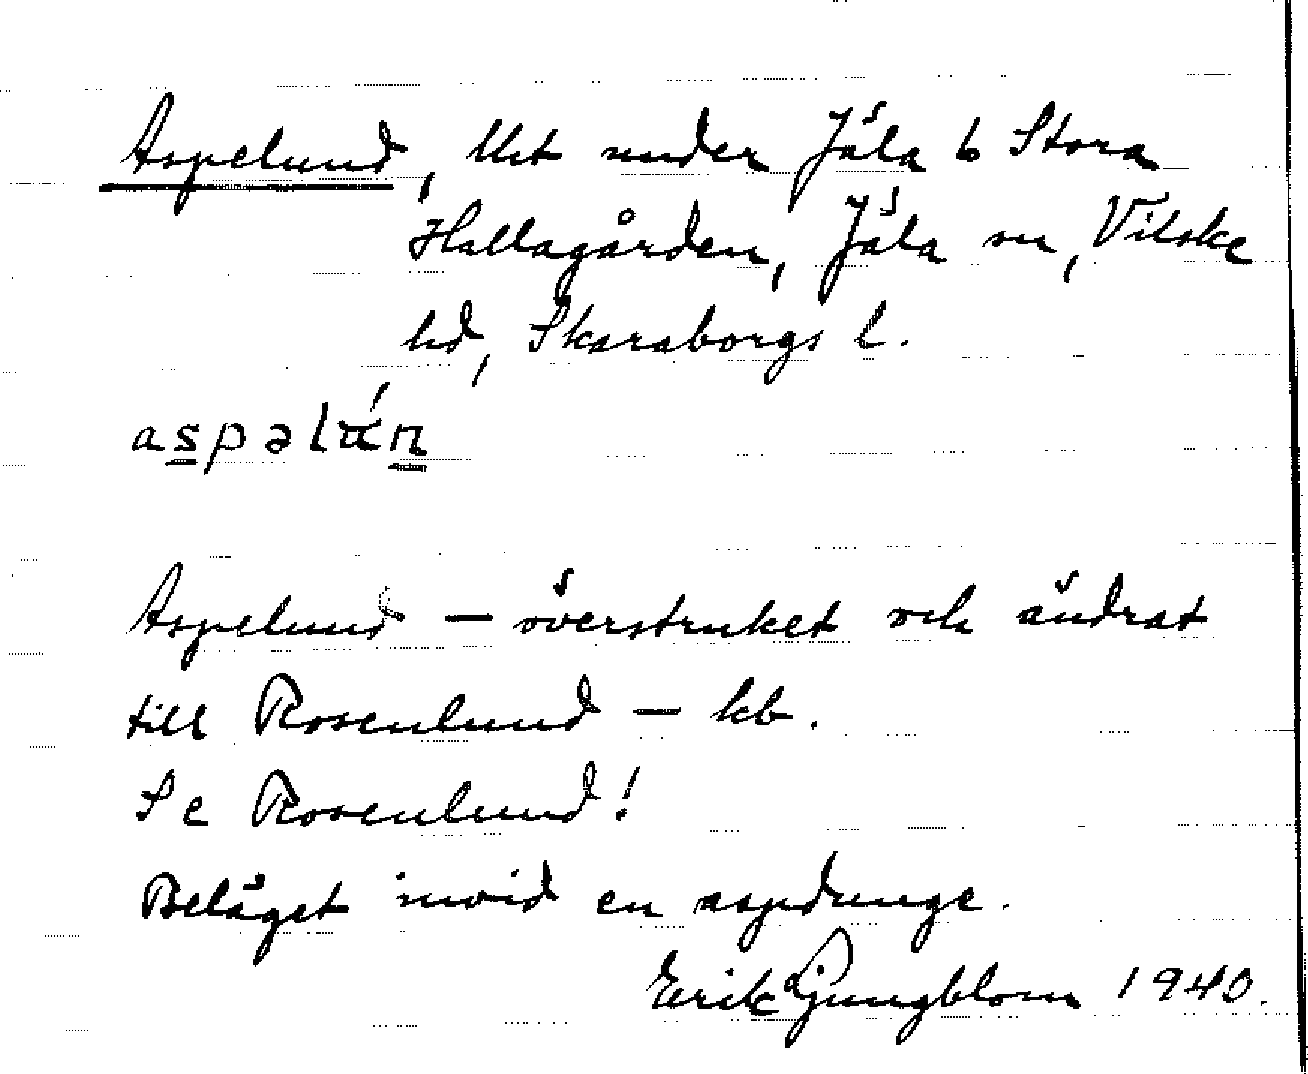 Aspelund, Utt under Jäla 6 Stora
Hallagården, Jäla sn, Vilske
hd, Skaraborgs l.
aspəlán
Aspelund — överstruket och ändrat
till Rosenlund — kb.
Se Rosenlund!
Beläget invid en aspdunge.
Erik Ljungblom 1940.